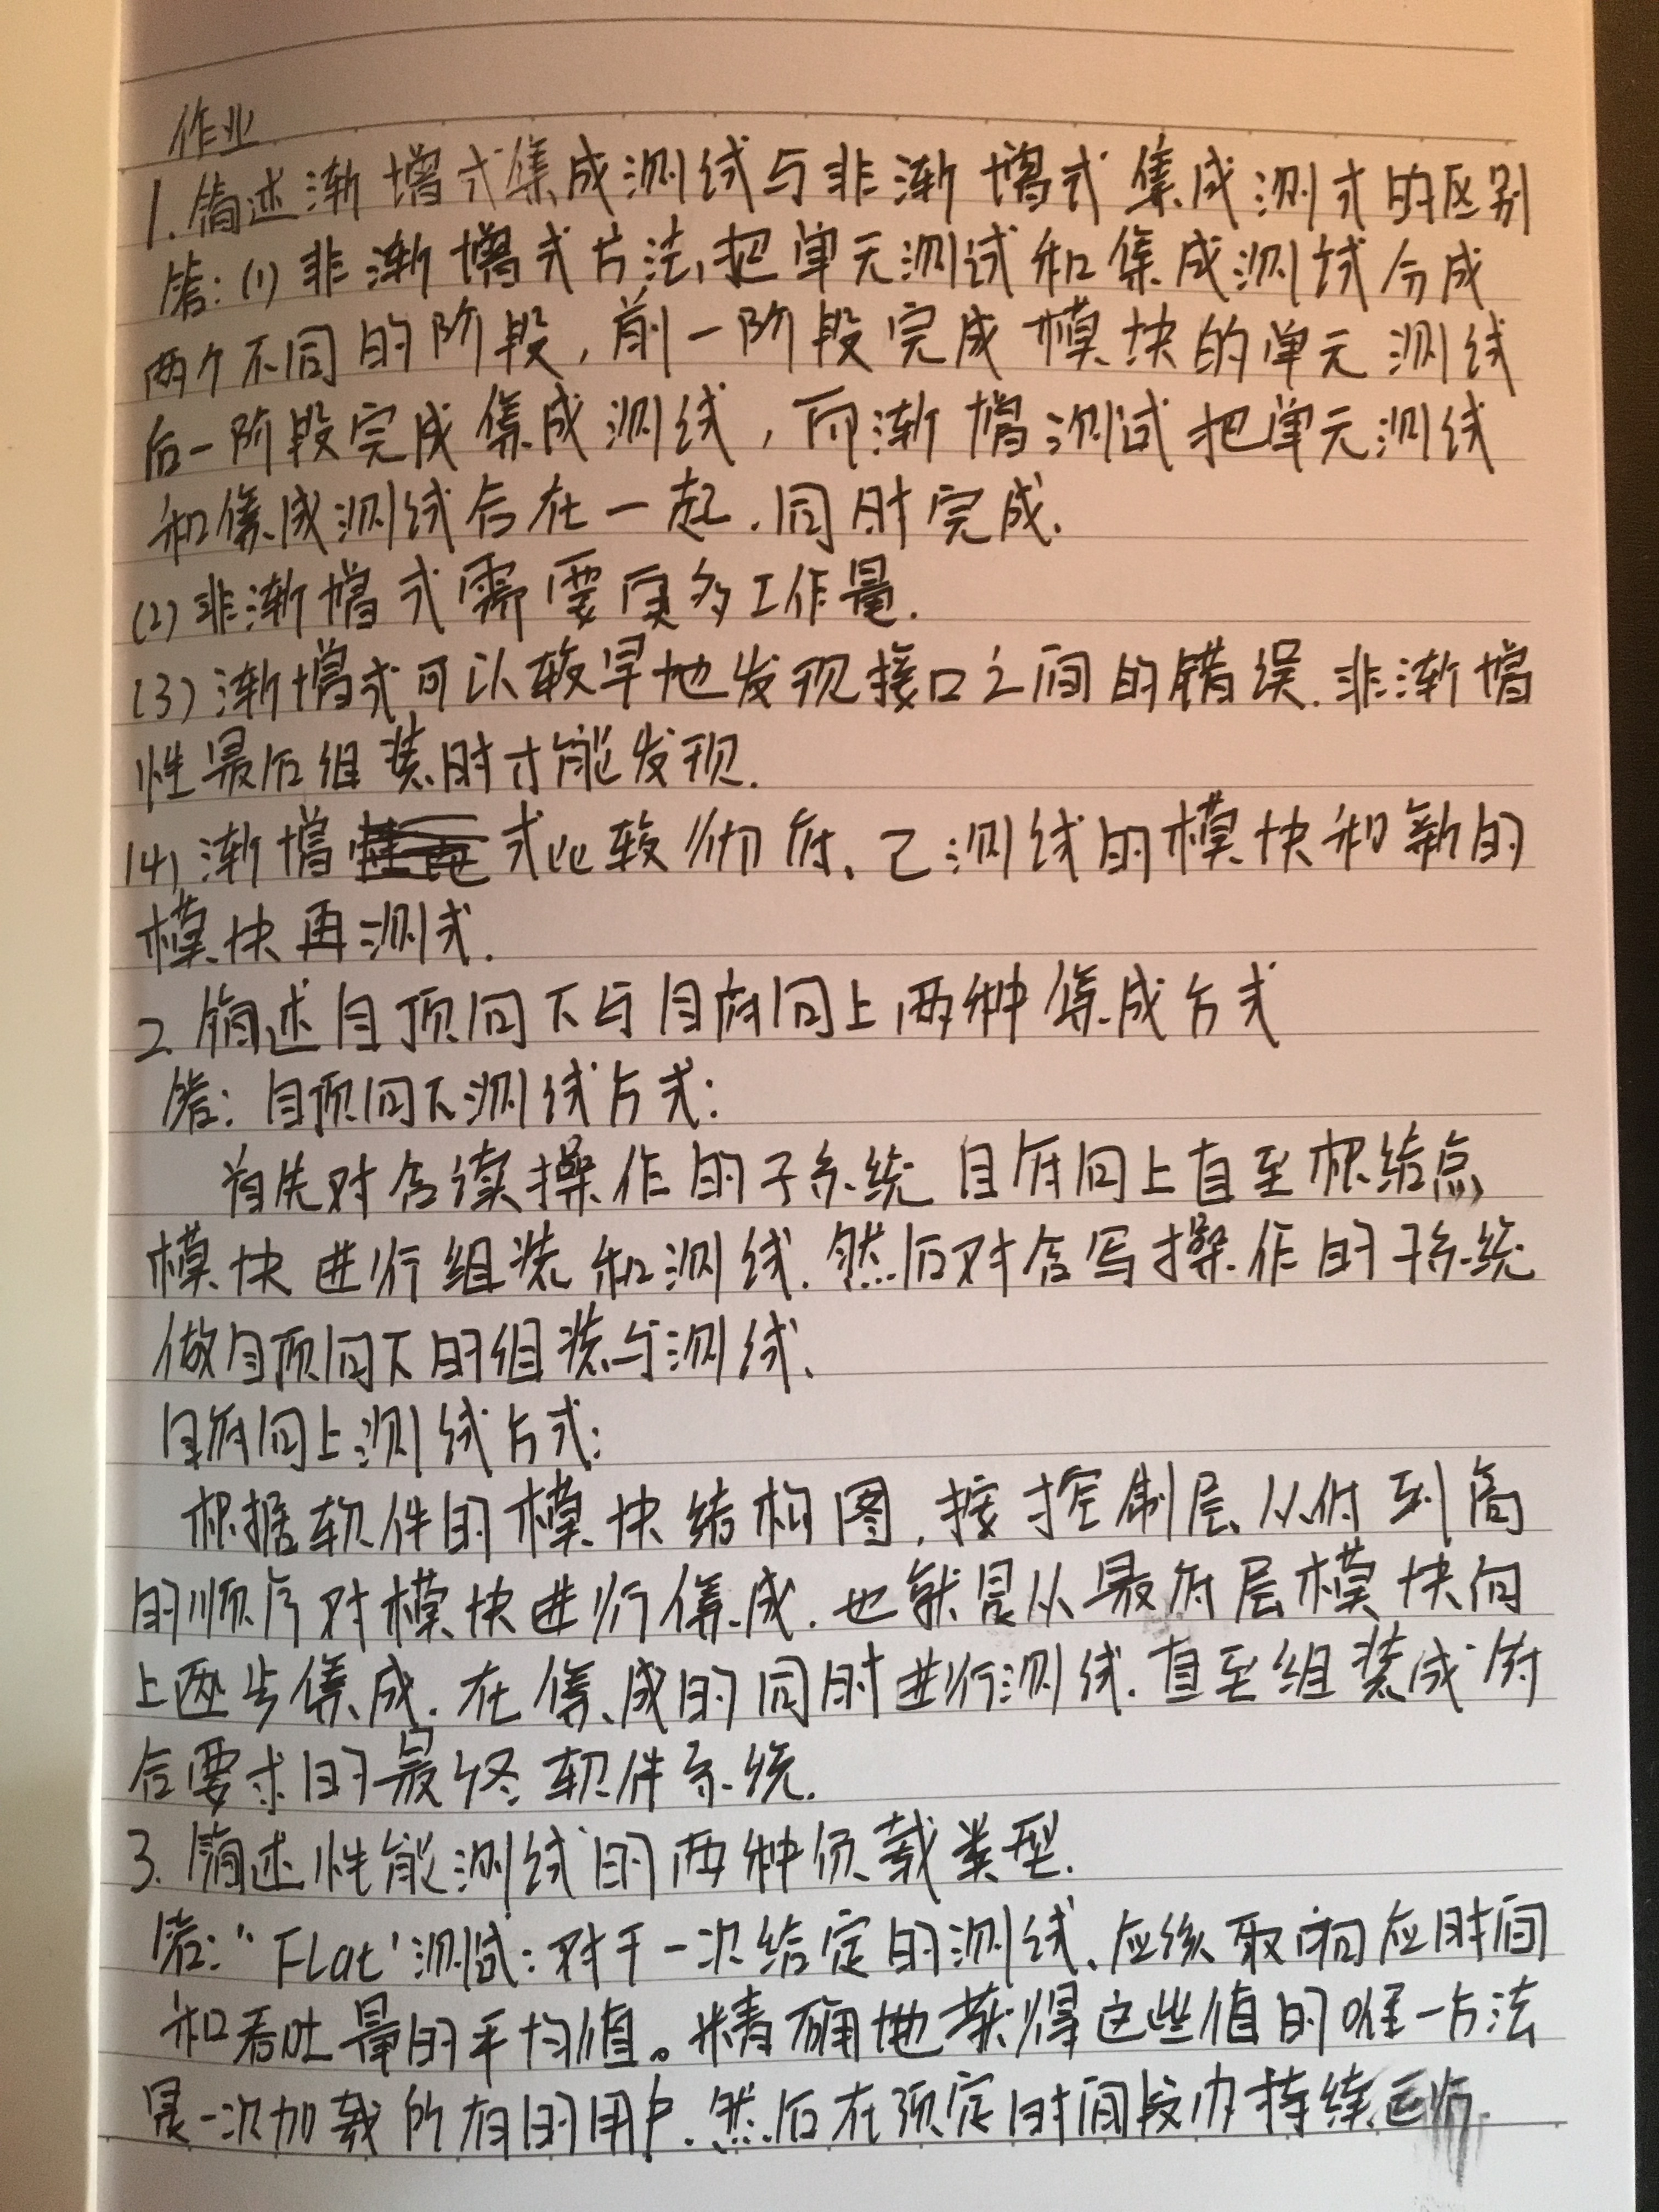 作业
1. 简述渐增式集成测试与非渐增式集成测式的区别
答:(1) 非渐增式方法,把单元测试和集成测试分成
两个不同的阶段,前一阶段完成模块的单元测试
后一阶段完成集成测试,而渐增测试把单元测试
和集成测试合在一起.同时完成.
(2) 非渐增式需要更多工作量.
(3) 渐增式可以较早地发现接口之间的错误.非渐增
性最后组装时才能发现.
(4) 渐增式比较彻底、已测试的模块和新的
模块再测式.
2. 简述自顶向下与自底向上两种集成方式
答: 自顶向下测试方式:
首先对含读操作的子系统自底向上直至根结点
模块进行组装和测试.然后对含写操作的子系统
做自顶向下的组装与测试.
自底向上测试方式:
根据软件的模块结构图,按控制层从低到高
的顺序对模块进行集成.也就是从最底层模块向
上逐步集成.在集成的同时进行测试.直至组装成符
合要求的最终软件系统.
3. 简述性能测试的两种负载类型.
答:"FLat"测试:对于一次给定的测试、应该取响应时间
和吞吐量的平均值。精确地获得这些值的唯一方法
是一次加载所有的用户.然后在预定时间段内持续运行.